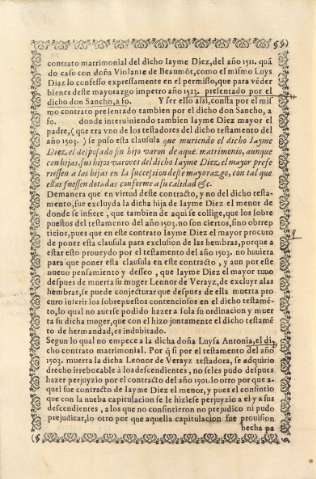 59
contrato matrimonial del dicho Iayme Diez, del año 1511. quã
do caso con doña Violante de Beaumõt, como el mismo Luys
Diez lo confesso expressamente en el permisso, que para vẽder
bienes deste mayorazgo impetro año 1523. presentado por el
dicho don Sancho, a fo. Y ser esso assi, consta por el mis
mo contrato presentado tambien por el dicho don Sancho, a
fo. donde interuiniendo tambien Iayme Diez mayor el
padre, (que era vno de los testadores del dicho testamento del
año 1503.) se puso esta clausula que muriendo el dicho Iayme
Diez, el desposado sin hijo varon de aquel matrimonio, aunque
con hijas, sus hijos varones del dicho Iayme Diez, el mayor prefe
riessen a las hijas en la succession deste mayorazgo, con tal que
ellas fuessen dotadas conforme a su calidad &c.
Demanera que en virtud deste contracto, y no del dicho testa-
mento, fue excluyda la dicha hija de Iayme Diez el menor de
donde se infiere, que tambien de aqui se collige, que los sobre
puestos del testamento del año 1503. no son ciertos, sino obrep
ticios, pues que en este contracto Iayme Diez el mayor procuro
de poner esta clausula para exclusion de las hembras, porque a
estar esto proueydo por el testamento del año 1503. no huuiera
para que poner esta clausula en este contracto, y aun por este
nueuo pensamiento y desseo, que Iayme Diez el mayor tuuo
despues de muerta su muger Leonor de Verayz, de excluyr a las
hembras, se puede conjecturar que despues de ella muerta pro
curo interir los sobrepuestos contenciosos en el dicho testamẽ-
to, lo qual no auerse podido hazer a sola su ordinacion y muer
ta su dicha muger, que con el hizo juntamente el dicho testamẽ
to de hermandad, es indubitado.
Segun lo qual no empece a la dicha doña Luysa Antonia, el di
cho contrato matrimonial. Por q̃ si por el testamento del año
1503. muerta la dicha Leonor de Verayz testadora, se adquirio
drecho irreuocable a los descendientes, no se les pudo despues
hazer perjuyzio por el contracto del año 1501. lo otro por que a-
quel fue contracto de Iayme Diez el menor, y pues el consintio
que con la nueba capitulacion se le hiziesse perjuyzio a el y a sus
descendientes, a los que no consintieron no prejudico ni pudo
prejudicar, lo otro por que aquella capitulacion fue prouision
hecha pa